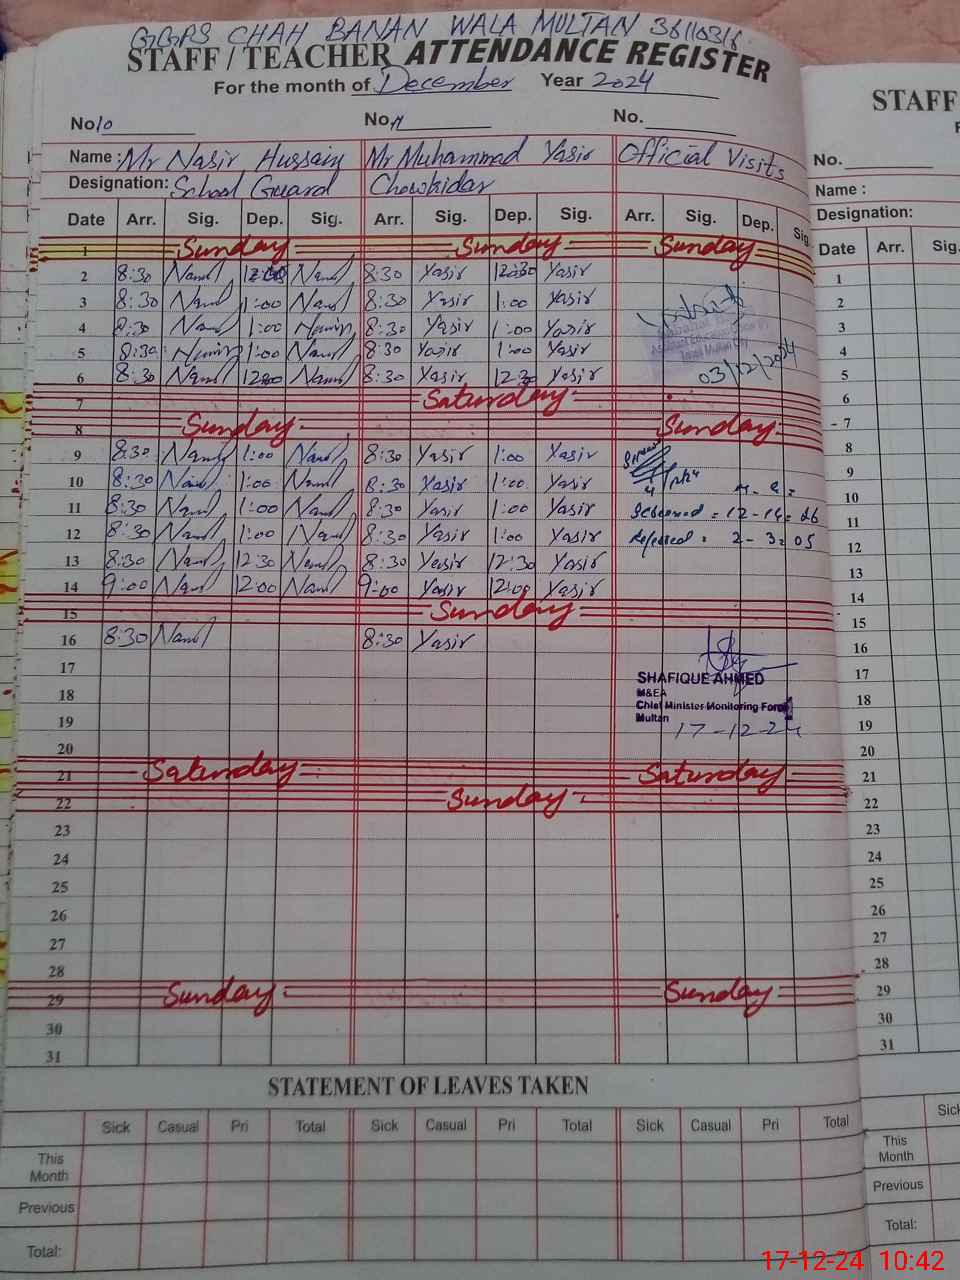 GGPS CHAH BANAN WALA MULTAN 36110316
STAFF / TEACHER ATTENDANCE REGISTER
For the month of December Year 2024
No 10 No. 11 No.
Name : Mr Nasir Hussain Mr Muhammad Yasir Official Visits
Designation: School Guard Chowkidar
Date Arr. Sig. Dep. Sig. Arr. Sig. Dep. Sig. Arr. Sig. Dep. Sig.
1 Sunday Sunday Sunday
2 8:30 12:30 8:30 Yasir 12:30 Yasir
3 8:30 1:00 8:30 Yasir 1:00 Yasir
4 8:30 1:00 8:30 Yasir 1:00 Yasir
5 8:30 1:00 8:30 Yasir 1:00 Yasir
6 8:30 8:30 Yasir 12:30 Yasir
03/12/2024
7 Saturday
8 Sunday Sunday
9 8:30 1:00 8:30 Yasir 1:00 Yasir
10 8:30 1:00 8:30 Yasir 1:00 Yasir
11 8:30 1:00 8:30 Yasir 1:00 Yasir
12 8:30 1:00 8:30 Yasir 1:00 Yasir
13 8:30 12:30 8:30 Yasir 12:30 Yasir
14 9:00 12:00 9:00 Yasir 12:00 Yasir
15 Sunday
16 8:30 8:30 Yasir
17
SHAFIQUE AHMED
M&EA
18
Chief Minister Monitoring Force
Multan
19
17-12-24
20
21 Saturday Saturday
22 Sunday
23
24
25
26
27
28
29 Sunday Sunday
30
31
STATEMENT OF LEAVES TAKEN
Sick Casual Pri Total Sick Casual Pri Total Sick Casual Pri Total
This Month
Previous
Total:
STAFF
No.
Name :
Designation:
Date Arr. Sig.
1
2
3
4
5
6
7
8
9
10
11
12
13
14
15
16
17
18
19
20
21
22
23
24
25
26
27
28
29
30
31
Sick
This Month
Previous
Total:
17-12-24 10:42